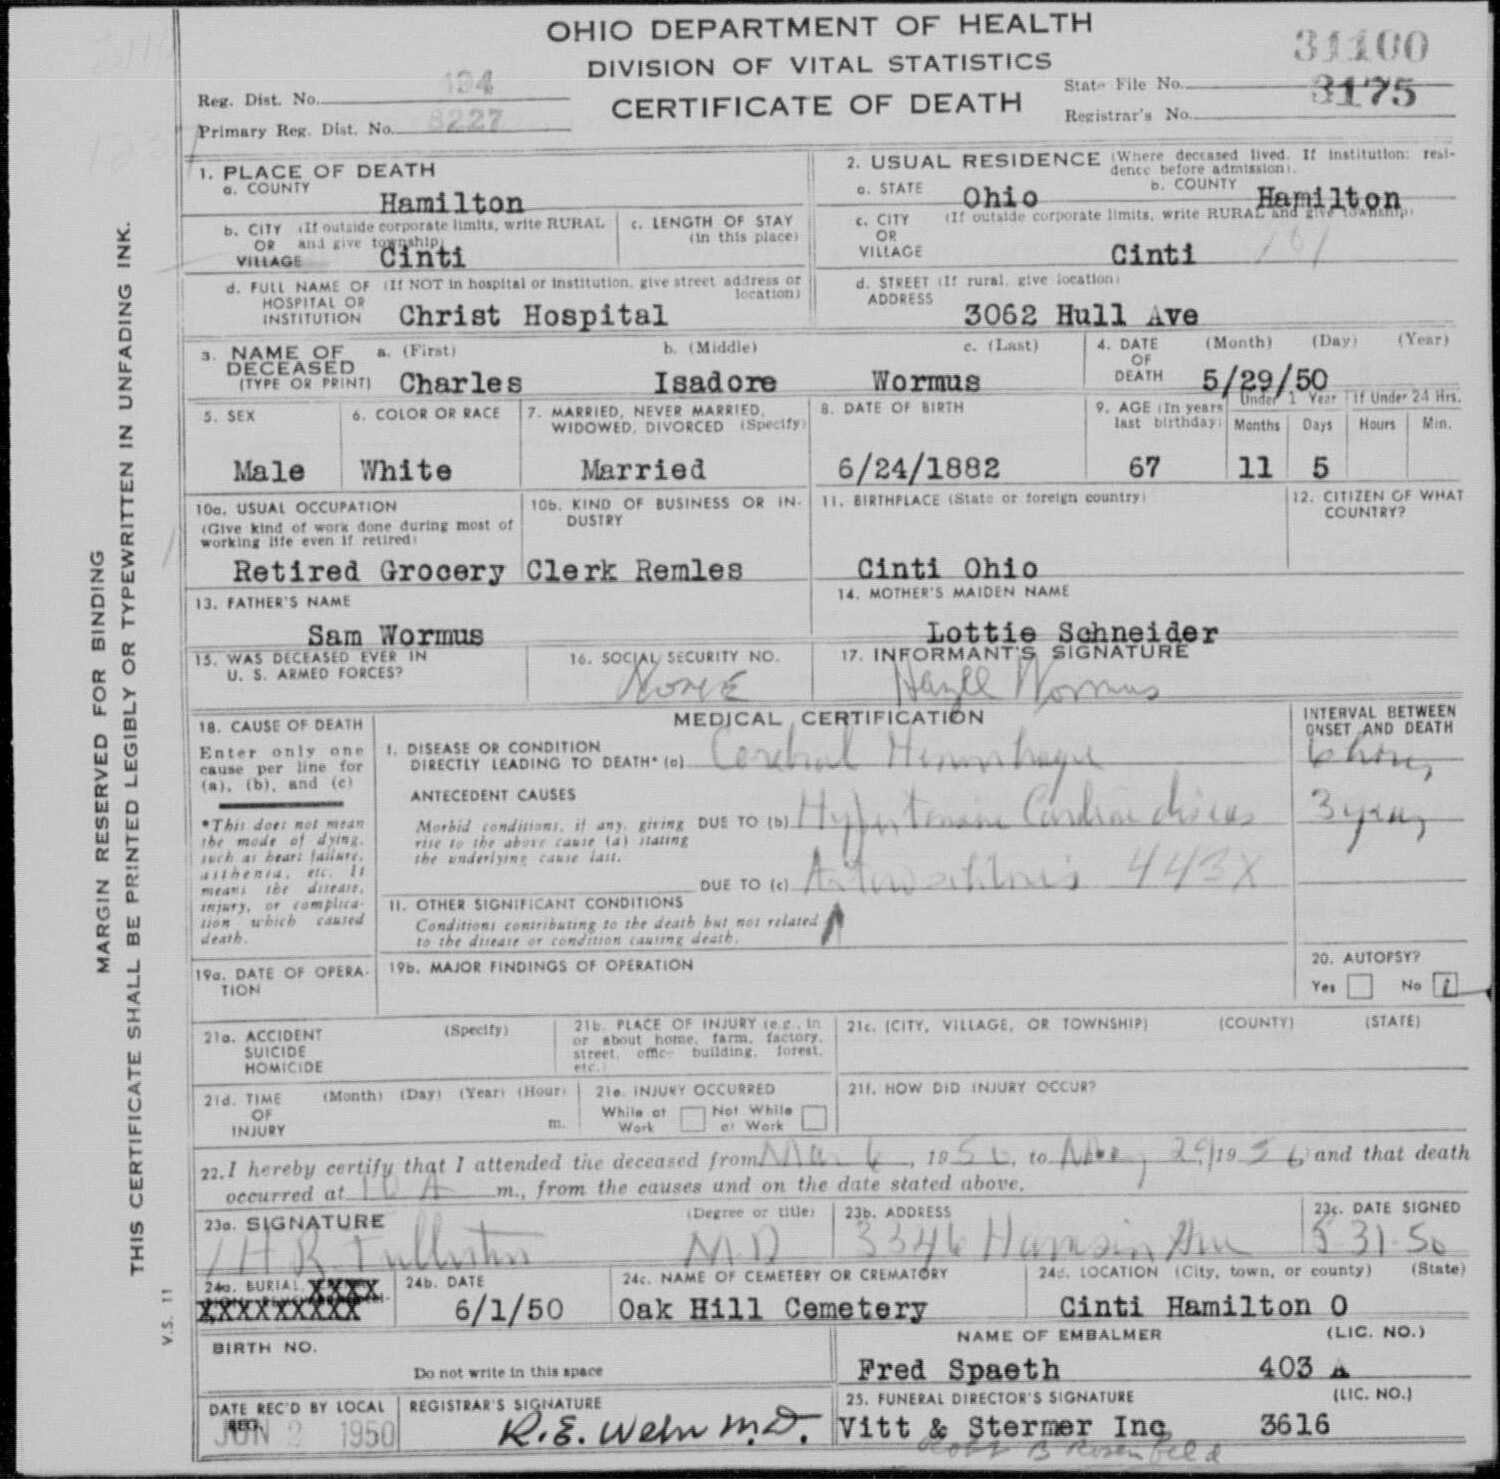 OHIO DEPARTMENT OF HEALTH
DIVISION OF VITAL STATISTICS
CERTIFICATE OF DEATH
31100
Reg. Dist. No. 194
State File No.
3175
Primary Reg. Dist. No. 8227
Registrar's No.
1. PLACE OF DEATH
a. COUNTY
Hamilton
2. USUAL RESIDENCE (Where deceased lived. If institution: resi-
dence before admission).
a. STATE Ohio b. COUNTY Hamilton
b. CITY (If outside corporate limits, write RURAL
OR and give township)
VILLAGE Cinti
c. LENGTH OF STAY
(in this place)
c. CITY (If outside corporate limits, write RURAL and give township)
OR
VILLAGE Cinti
d. FULL NAME OF (If NOT in hospital or institution, give street address or
HOSPITAL OR location)
INSTITUTION Christ Hospital
d. STREET (If rural, give location)
ADDRESS
3062 Hull Ave
3. NAME OF a. (First) b. (Middle) c. (Last)
DECEASED
(TYPE OR PRINT) Charles Isadore Wormus
4. DATE (Month) (Day) (Year)
OF
DEATH 5/29/50
5. SEX
Male
6. COLOR OR RACE
White
7. MARRIED, NEVER MARRIED,
WIDOWED, DIVORCED (Specify)
Married
8. DATE OF BIRTH
6/24/1882
9. AGE (In years
last birthday)
67
Under 1 Year
Months Days
11 5
If Under 24 Hrs.
Hours Min.
10a. USUAL OCCUPATION
(Give kind of work done during most of
working life even if retired)
10b. KIND OF BUSINESS OR IN-
DUSTRY
Retired Grocery Clerk Remles
11. BIRTHPLACE (State or foreign country)
Cinti Ohio
12. CITIZEN OF WHAT
COUNTRY?
13. FATHER'S NAME
Sam Wormus
14. MOTHER'S MAIDEN NAME
Lottie Schneider
15. WAS DECEASED EVER IN
U. S. ARMED FORCES?
16. SOCIAL SECURITY NO.
None
17. INFORMANT'S SIGNATURE
Hazell Wormus
18. CAUSE OF DEATH
Enter only one
cause per line for
(a), (b), and (c)
*This does not mean
the mode of dying,
such as heart failure,
asthenia, etc. It
means the disease,
injury, or complica-
tion which caused
death.
MEDICAL CERTIFICATION
INTERVAL BETWEEN
ONSET AND DEATH
I. DISEASE OR CONDITION
DIRECTLY LEADING TO DEATH* (a) Cerebral Hemorrhage 6 hours
ANTECEDENT CAUSES
Morbid conditions, if any, giving DUE TO (b) Hypertensive Cardiac disease 3 years
rise to the above cause (a) stating
the underlying cause last.
DUE TO (c) Arteriosclerosis 443X
II. OTHER SIGNIFICANT CONDITIONS
Conditions contributing to the death but not related
to the disease or condition causing death.
19a. DATE OF OPERA-
TION
19b. MAJOR FINDINGS OF OPERATION
20. AUTOPSY?
Yes No
21a. ACCIDENT (Specify)
SUICIDE
HOMICIDE
21b. PLACE OF INJURY (e.g., in
or about home, farm, factory,
street, office building, forest,
etc.)
21c. (CITY, VILLAGE, OR TOWNSHIP) (COUNTY) (STATE)
21d. TIME (Month) (Day) (Year) (Hour)
OF
INJURY m.
21e. INJURY OCCURRED
While at Not While
Work at Work
21f. HOW DID INJURY OCCUR?
22. I hereby certify that I attended the deceased from Mar 6, 1950, to May 29, 1950 and that death
occurred at 10 A m., from the causes and on the date stated above.
23a. SIGNATURE (Degree or title)
H R Fullerton M.D
23b. ADDRESS
3346 Harrison Ave
23c. DATE SIGNED
5-31-50
24a. BURIAL, XXXX
XXXXXXXXX
24b. DATE
6/1/50
24c. NAME OF CEMETERY OR CREMATORY
Oak Hill Cemetery
24d. LOCATION (City, town, or county) (State)
Cinti Hamilton O
BIRTH NO.
Do not write in this space
NAME OF EMBALMER (LIC. NO.)
Fred Spaeth 403 A
DATE REC'D BY LOCAL
REG.
JUN 2 1950
REGISTRAR'S SIGNATURE
R.E. Wehr M.D.
25. FUNERAL DIRECTOR'S SIGNATURE (LIC. NO.)
Vitt & Stermer Inc 3616
B Rosenfeld
MARGIN RESERVED FOR BINDING
THIS CERTIFICATE SHALL BE PRINTED LEGIBLY OR TYPEWRITTEN IN UNFADING INK.
V.S. 11